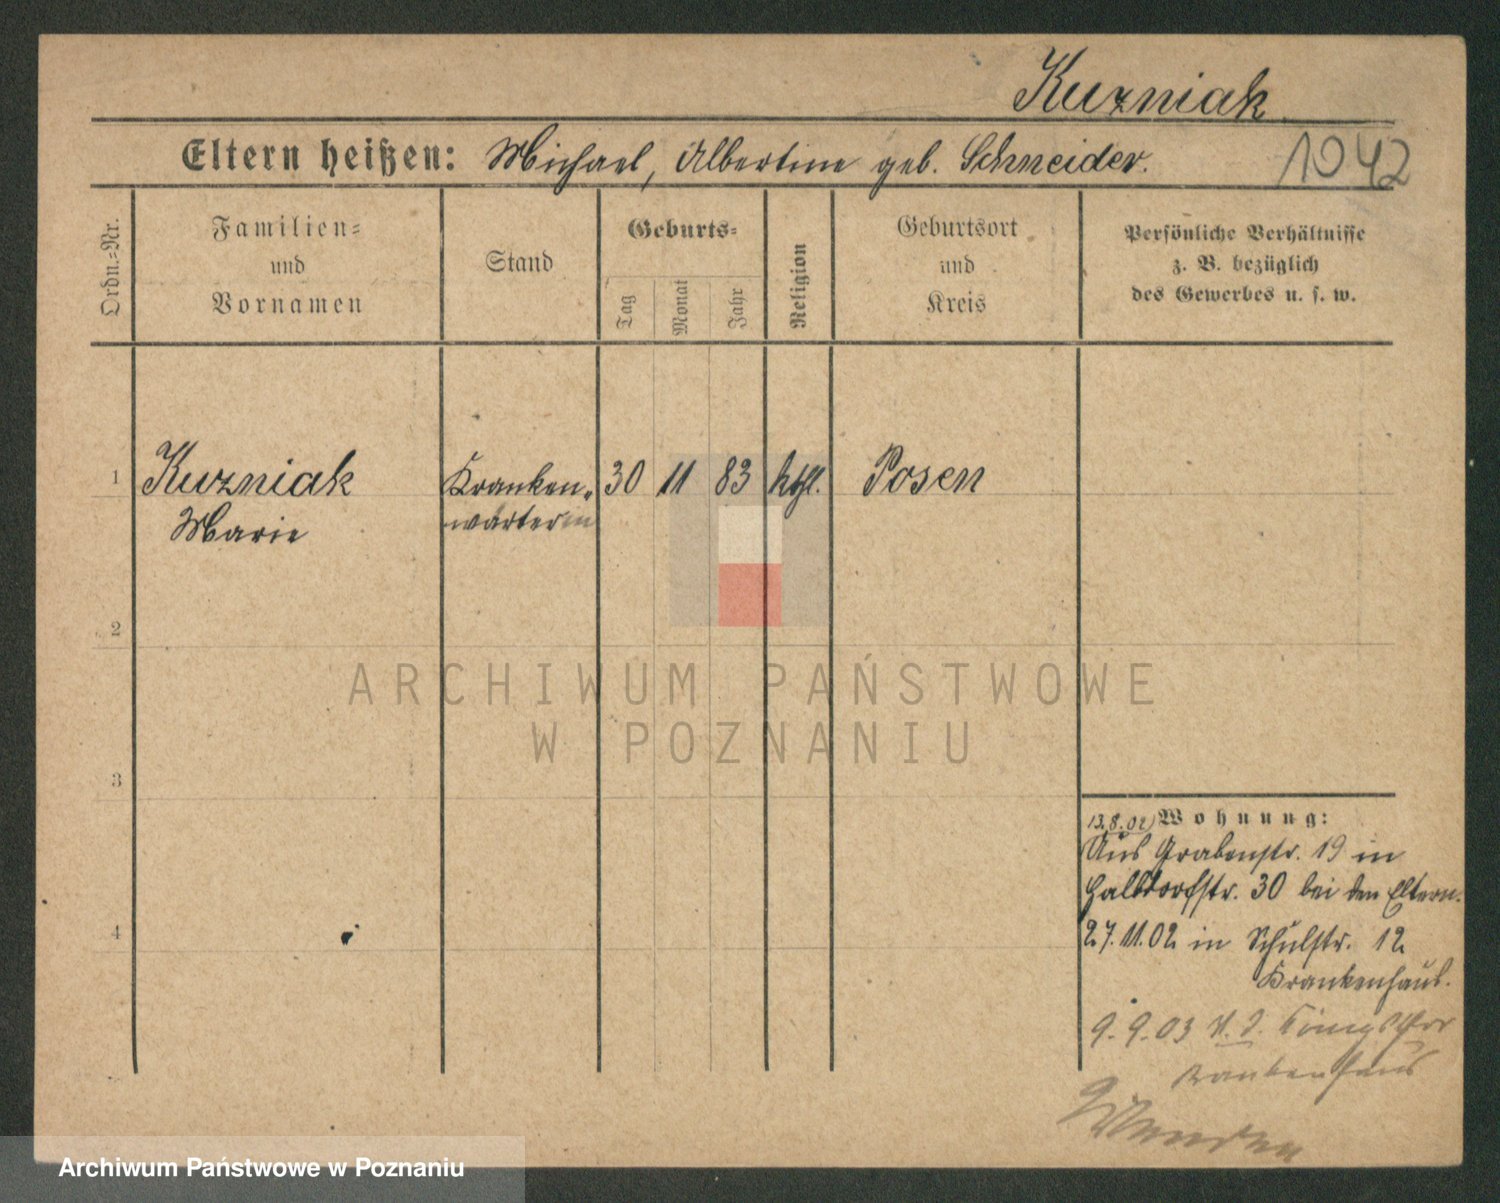 Kuzniak
Eltern heißen: Michael, Albertine geb. Schneider.
1042
Ordn.-Nr.
Familien-
und
Vornamen
Stand
Geburts-
Tag
Monat
Jahr
Religion
Geburtsort
und
Kreis
Persönliche Verhältnisse
z. B. bezüglich
des Gewerbes u. s. w.
1 Kuzniak Kranken- 30 11 83 kthl. Posen
Marie wärterin
2
ARCHIWUM PAŃSTWOWE
W POZNANIU
3
13.8.02) Wohnung:
Aus Grabenstr. 19 in
Halbdorfstr. 30 bei den Eltern.
4
27.11.02 in Schulstr. 12
Krankenhaus.
9.9.03 Königsthor
Krankenhaus
Wenden
Archiwum Państwowe w Poznaniu